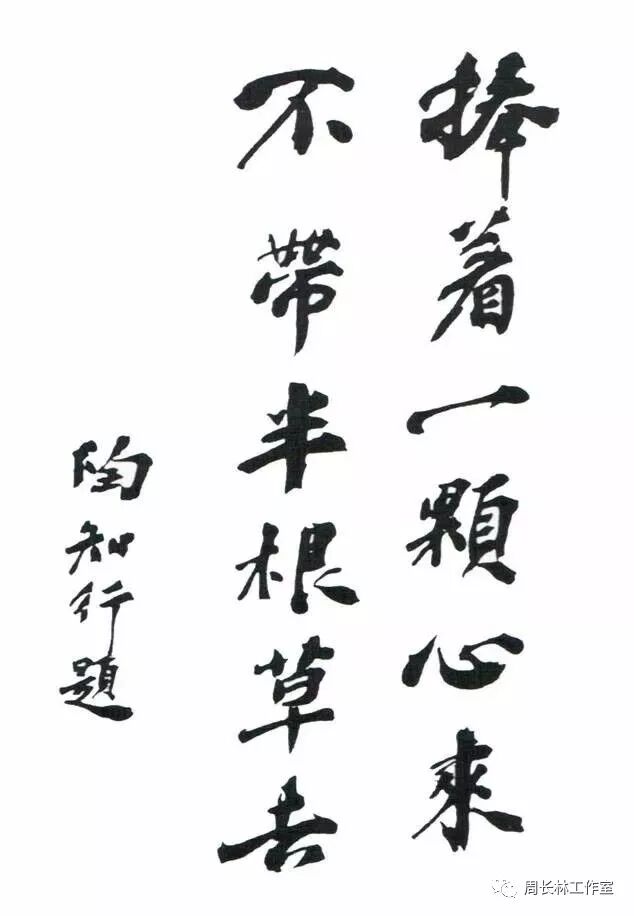 捧着一顆心來
不帶半根草去
陶知行題
周长林工作室